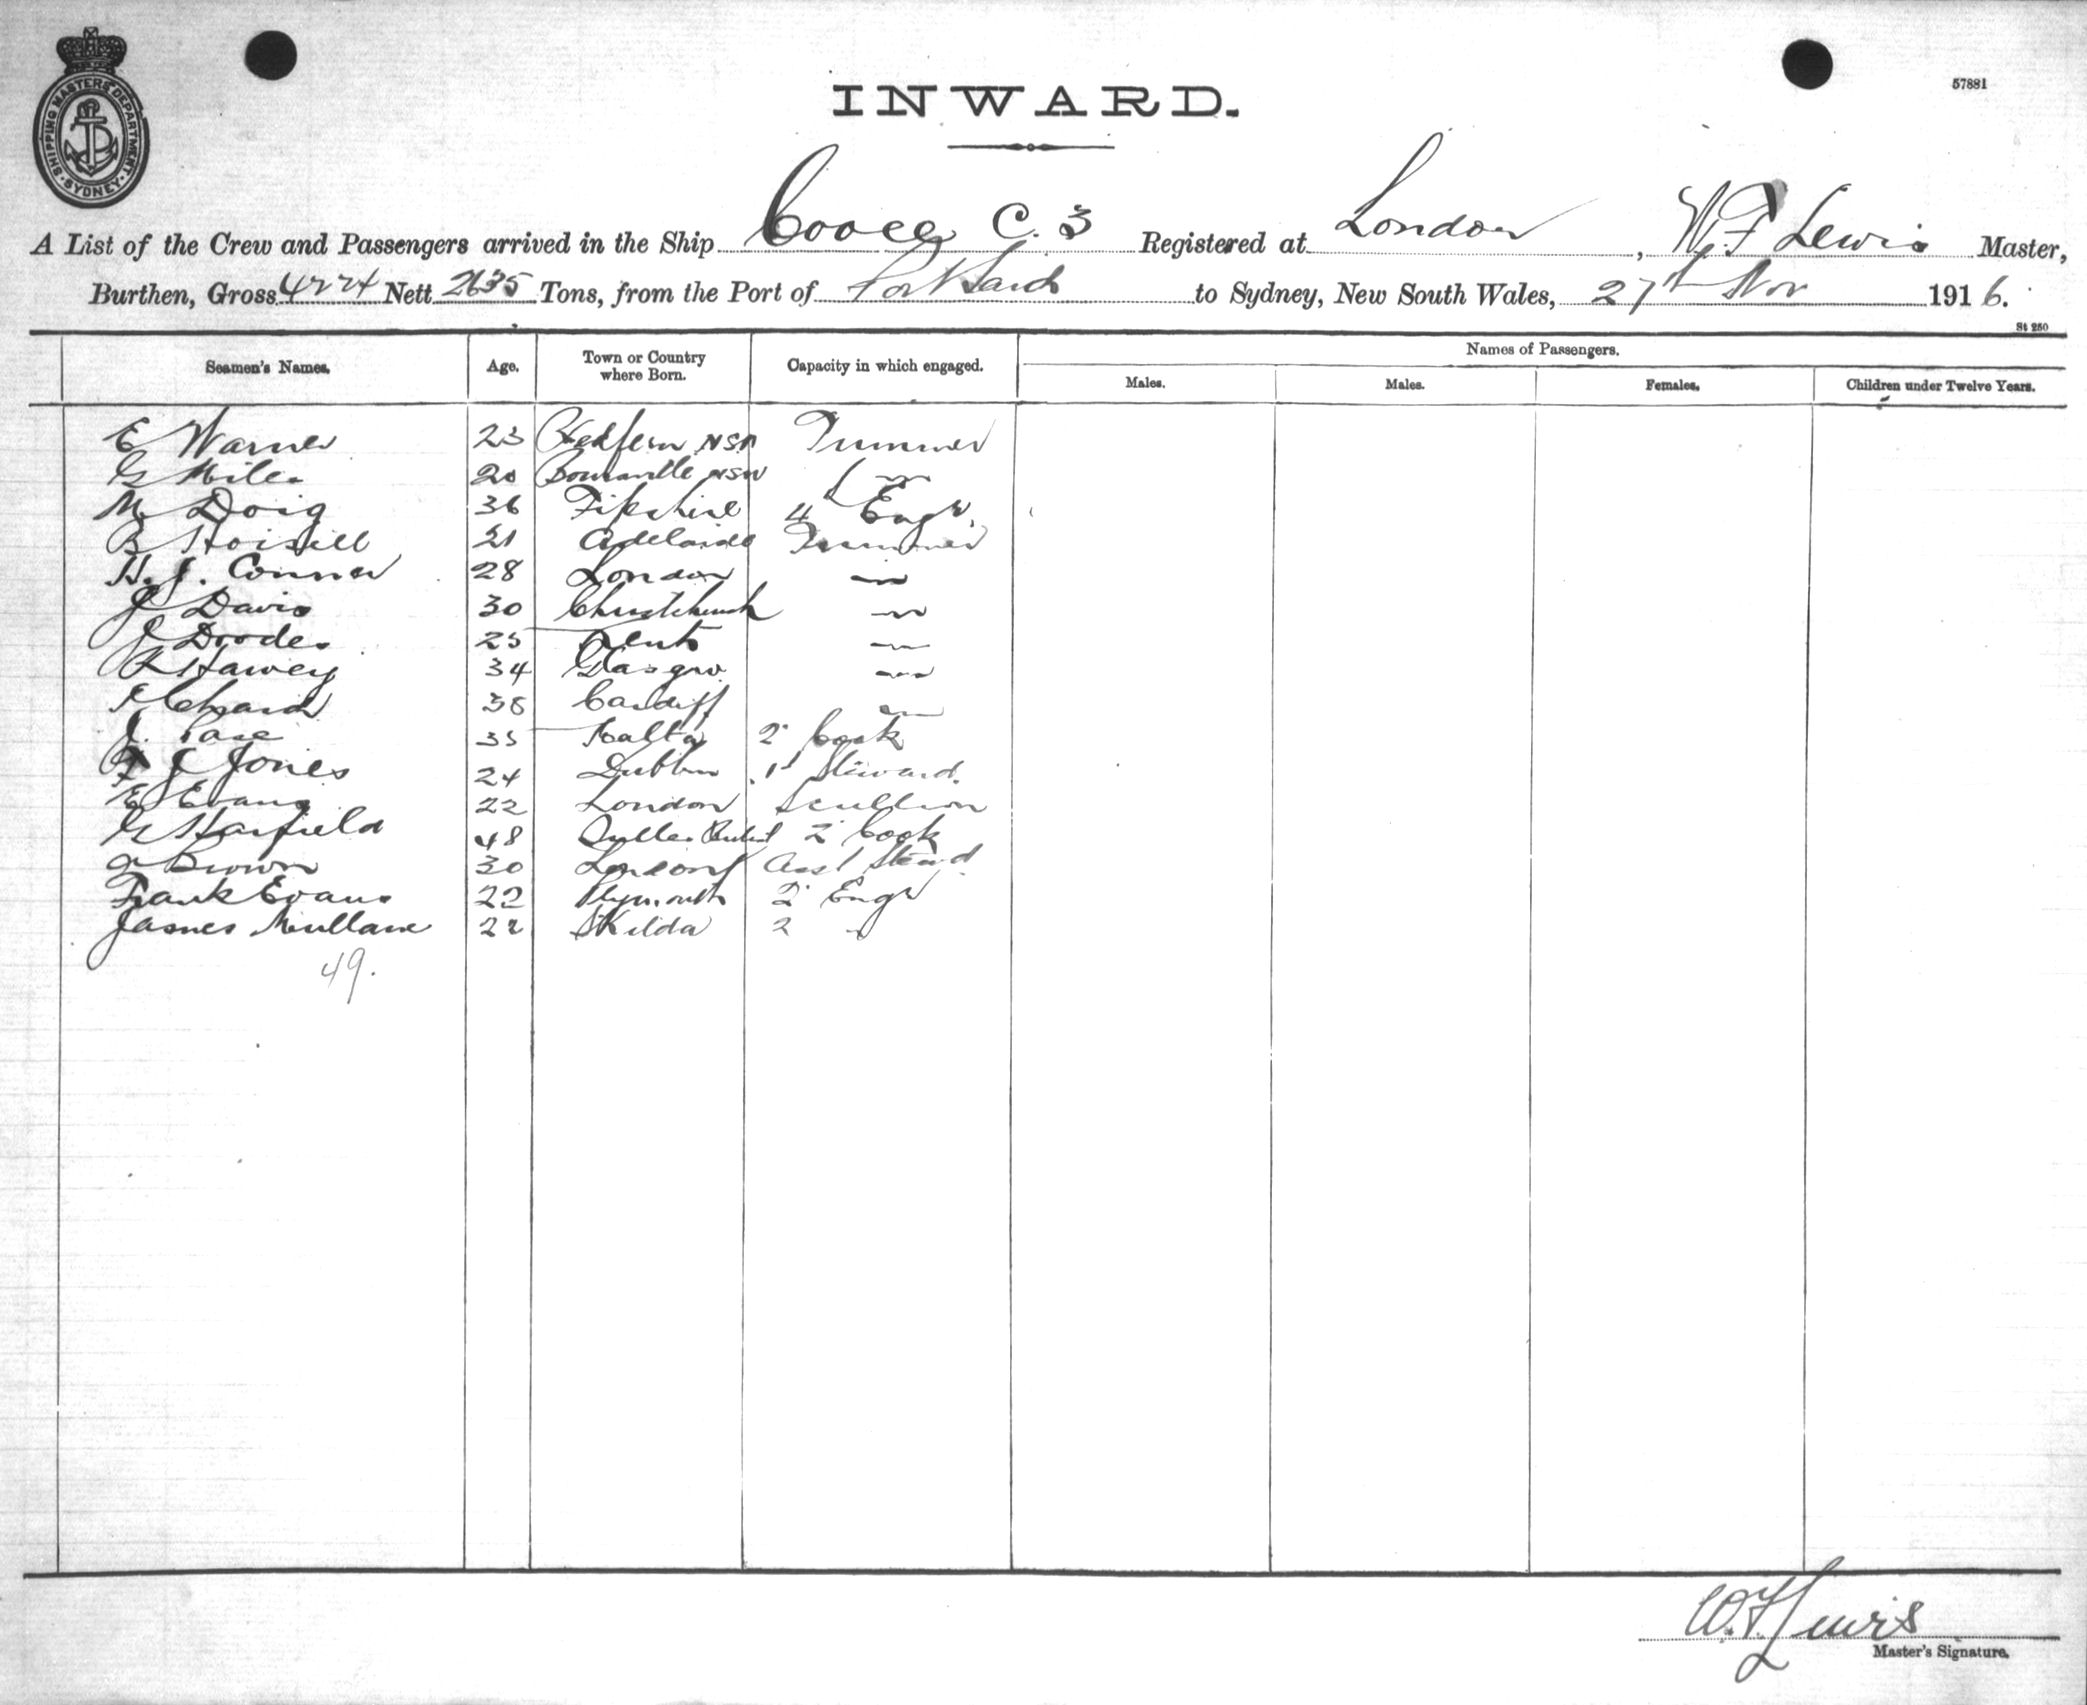 SHIPPING MASTERS DEPARTMENT
SYDNEY
57881
INWARD.
A List of the Crew and Passengers arrived in the Ship Cooee C. 3 Registered at London, W. F Lewis Master,
Burthen, Gross 4224 Nett 2635 Tons, from the Port of to Sydney, New South Wales, 27th Nov 1916.
St 250
Seamen's Names. Age. Town or Country where Born. Capacity in which engaged. Names of Passengers.
Males. Males. Females. Children under Twelve Years.
E Warner 23 Redfern NSW Trimmer
G Miles 20 NSW
M Doig 36 Fifeshire 4 Engr.
B 21 Adelaide Trimmer
H. J. Connor 28 London
J Davis 30 Christchurch
J 25 Kent
R Harvey 34 Glasgow
Chard 38 Cardiff
J. Pace 35 Malta 2 Cook
F J Jones 24 Dublin 1st Steward.
E Evans 22 London Scullion
G Harfield 48 2 Cook
Brown 30 London Asst Steward
Frank Evans 22 Plymouth 2 Engr
James Mullane 22 St Kilda 2 "
49.
W. F. Lewis
Master's Signature.